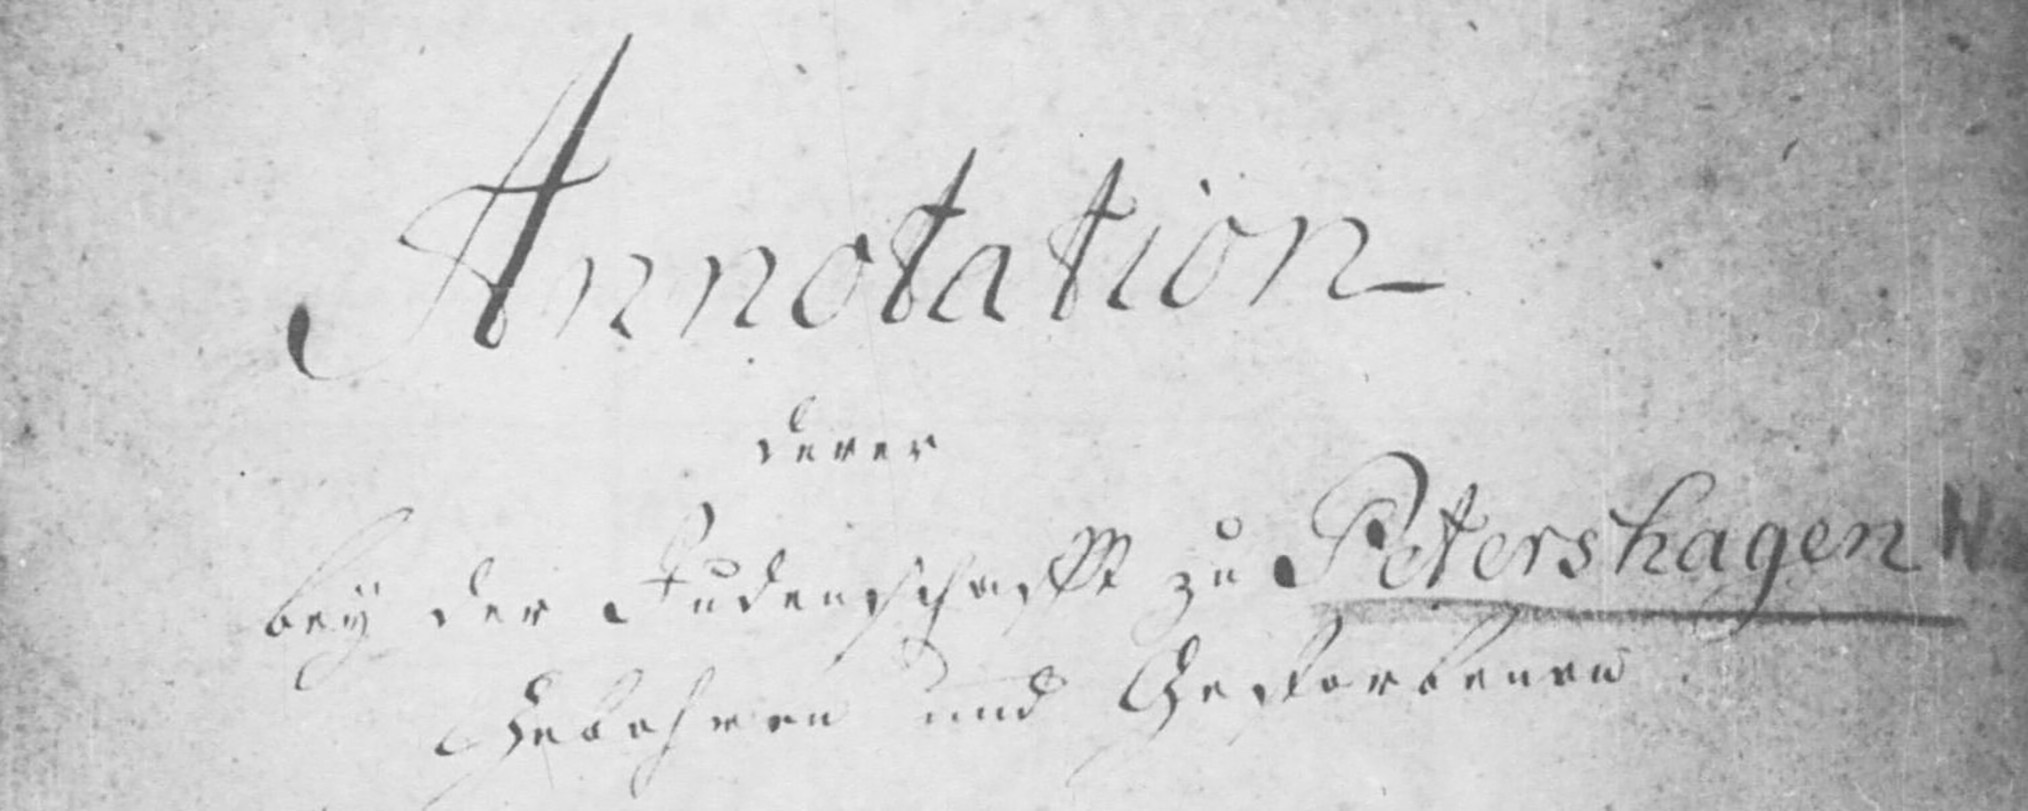 Annotation
derer
bey der Judenschafft zu Petershagen
Gebohren und Gestorbenen.